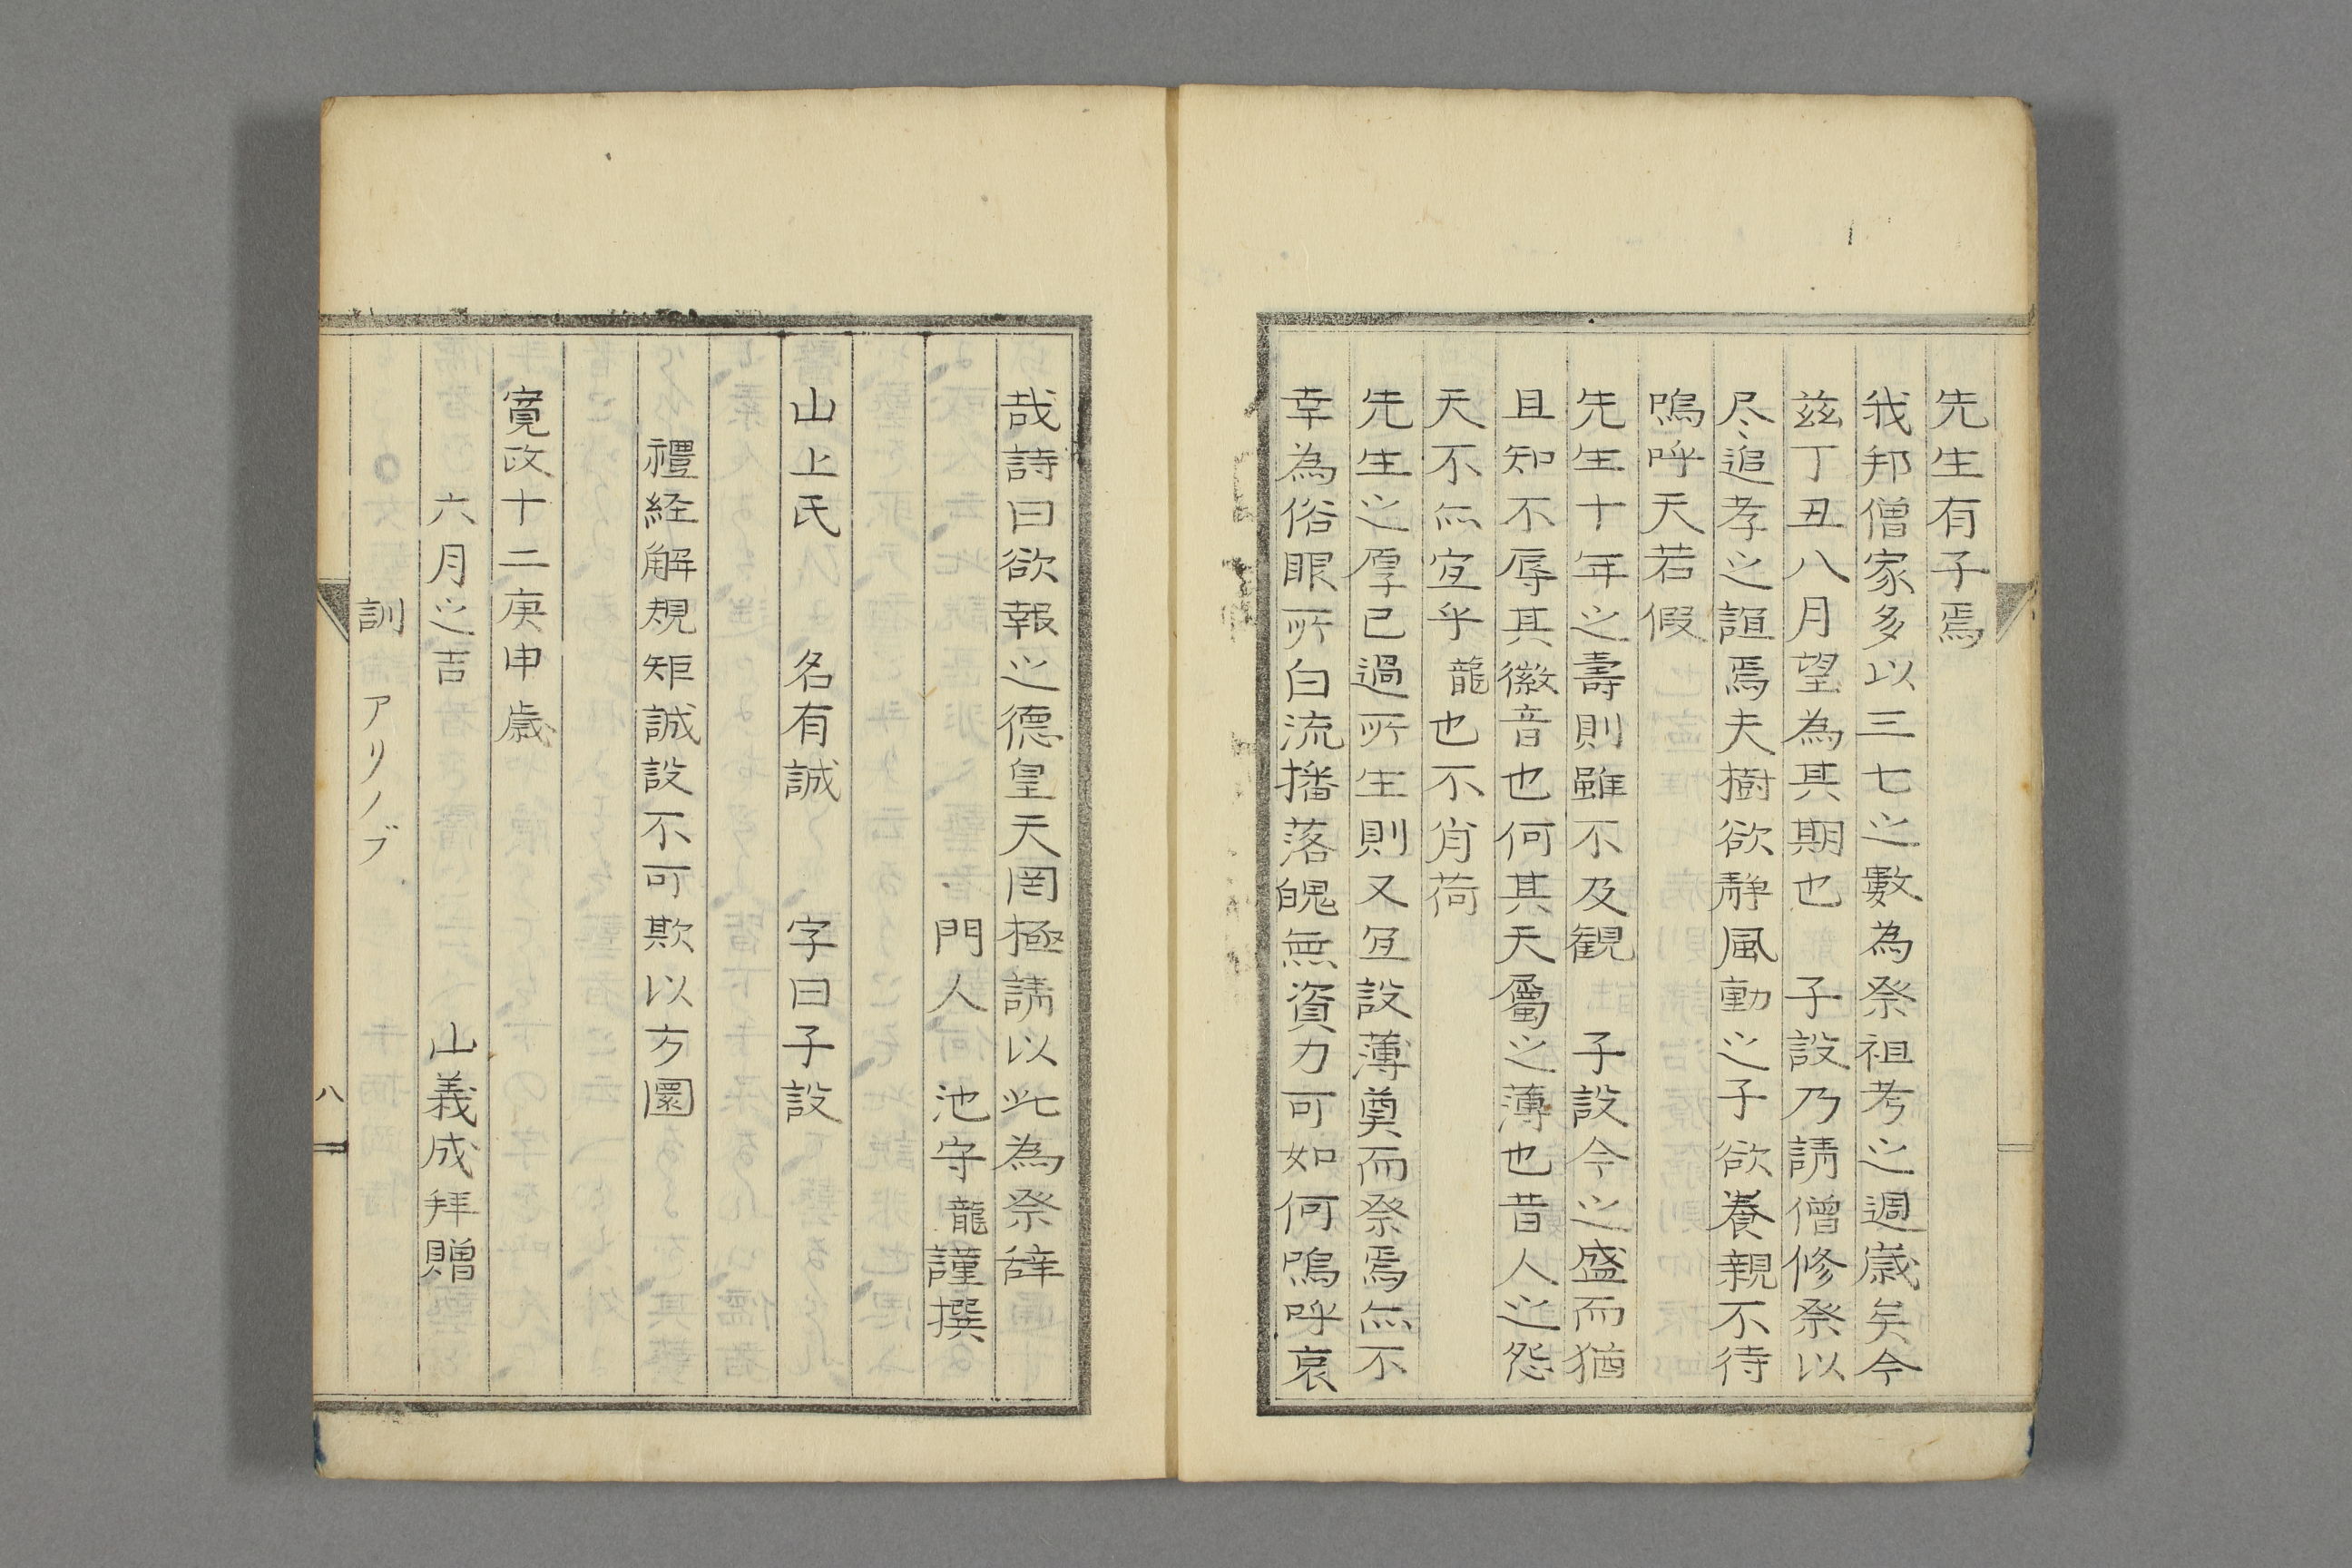 先生有子焉
我邦僧家多以三七之數為祭祖考之週歲矣今
茲丁丑八月望為其期也　子設乃請僧修祭以
尽追孝之誼焉夫樹欲靜風動之子欲養親不待
嗚呼天若假
先生十年之壽則雖不及觀　子設今之盛而猶
且知不辱其徽音也何其天屬之薄也昔人之怨
天不亦宜乎龍也不肖荷
先生之厚已過所生則又宜設薄奠而祭焉無不
幸為俗眼所白流播落魄無資力可如何嗚呼哀
哉詩曰欲報之德皇天罔極請以此為祭辞
門人　池守龍謹撰
山上氏　名有誠　字曰子設
禮経解規矩誠設不可欺以方圜
寛政十二庚申歲
六月之吉　山義成拜贈
訓　アリノブ
八